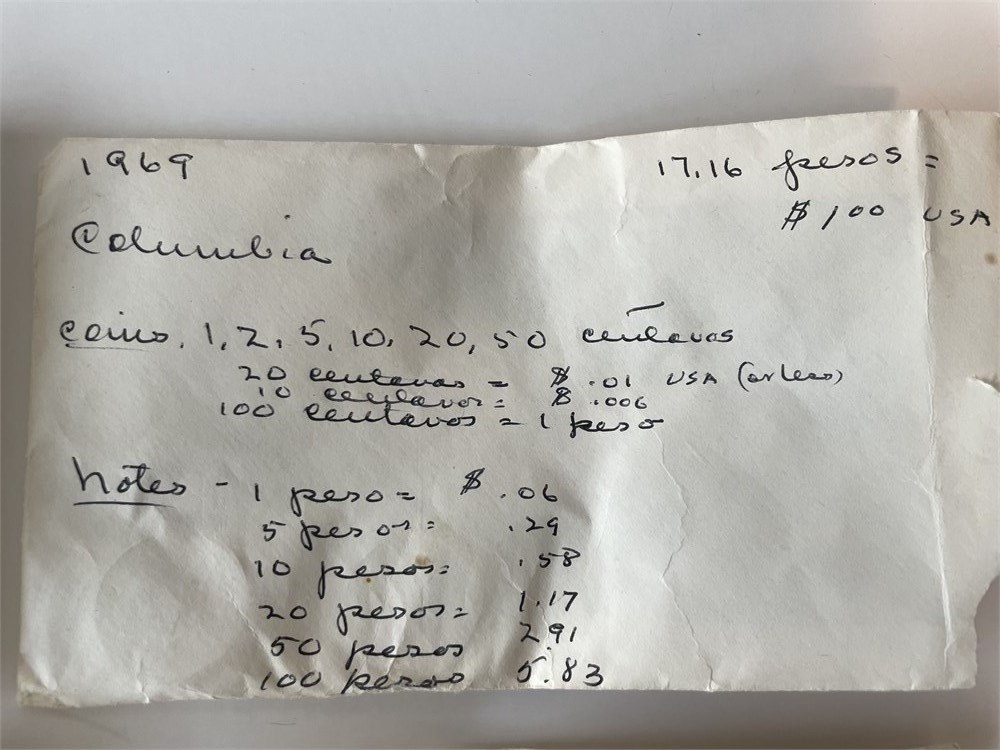 1969
17.16 pesos =
$1.00 USA
Columbia
coins, 1, 2, 5, 10, 20, 50 centavos
20 centavos = $ .01 USA (or less)
10 centavos = $ .006
100 centavos = 1 peso
Notes - 1 peso = $ .06
5 pesos = .29
10 pesos = .58
20 pesos = 1.17
50 pesos 2.91
100 pesos 5.83